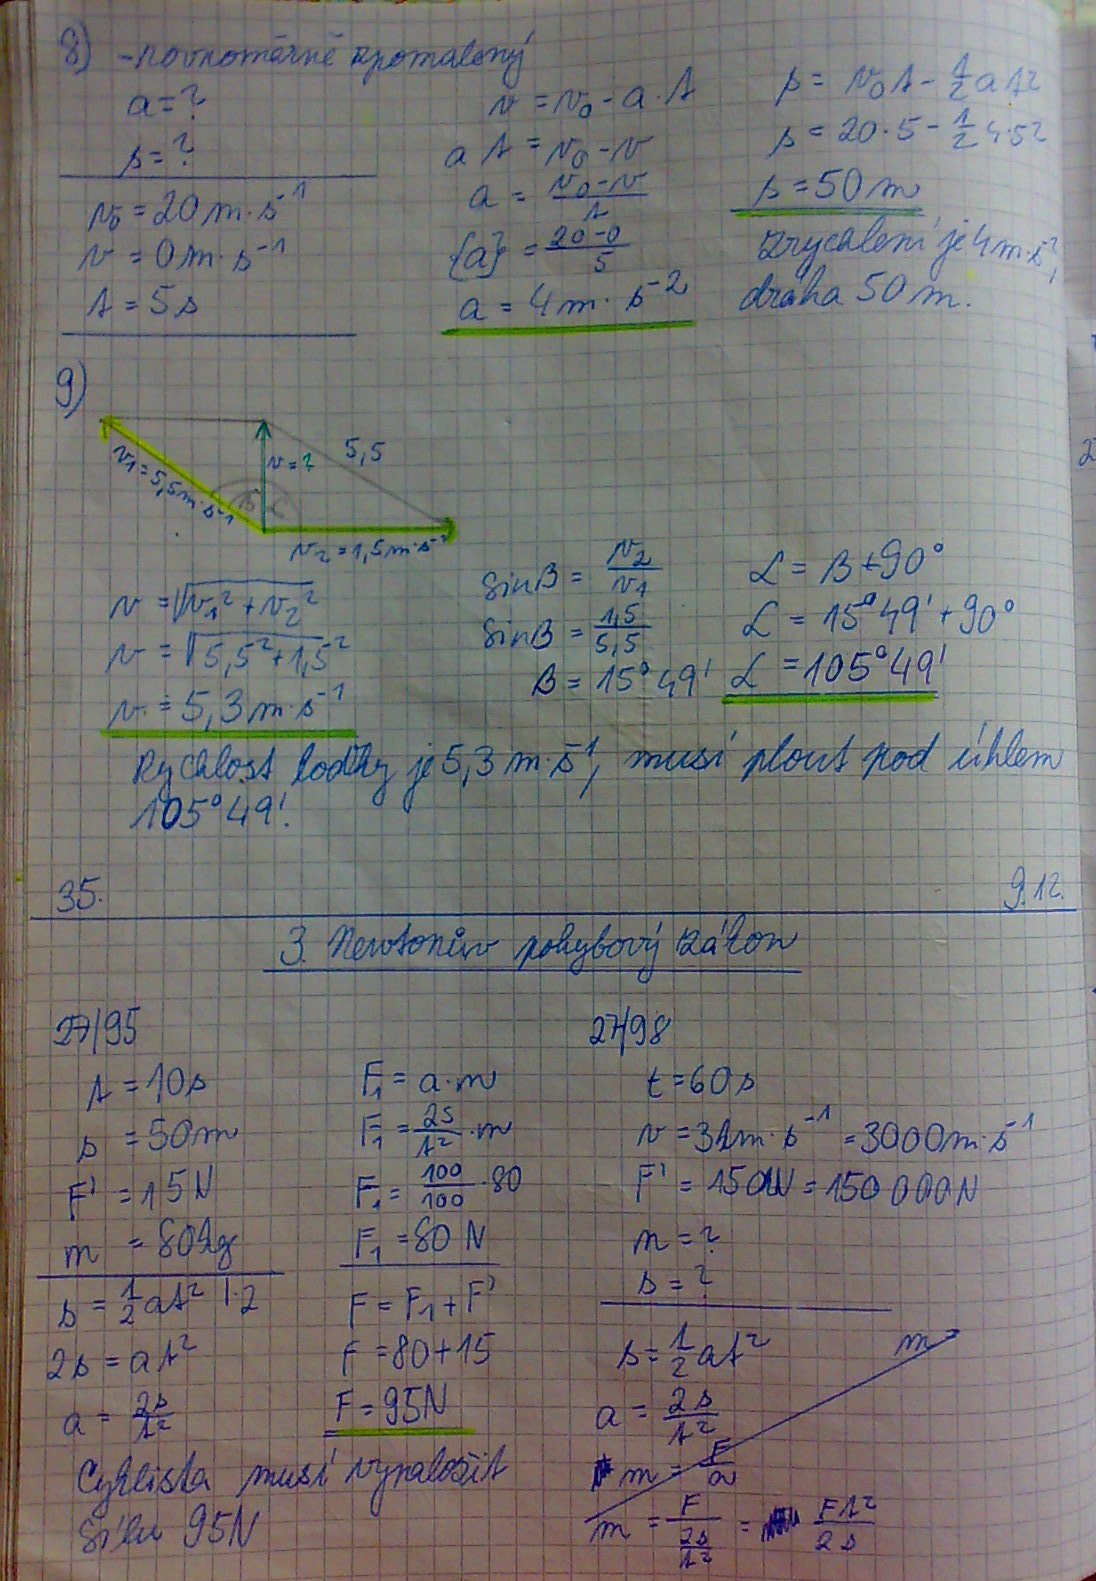 8) - rovnoměrně zpomalený
a = ?
s = ?
v₀ = 20 m·s⁻¹
v = 0 m·s⁻¹
t = 5 s
v = v₀ - a·t
a t = v₀ - v
a = (v₀ - v)/t
{a} = (20-0)/5
a = 4 m·s⁻²
s = v₀t - 1/2 a t²
s = 20·5 - 1/2 4·5²
s = 50 m
zrychlení je 4 m·s⁻²,
dráha 50 m.
9)
v₁ = 5,5 m·s⁻¹
v = ?
5,5
β α
v₂ = 1,5 m·s⁻¹
v = √(v₁² + v₂²)
v = √(5,5² + 1,5²)
v ≐ 5,3 m·s⁻¹
sin β = v₂/v₁
sin β = 1,5/5,5
β = 15°49'
α = β + 90°
α = 15°49' + 90°
α = 105°49'
Rychlost loďky je 5,3 m·s⁻¹, musí plout pod úhlem
105°49'.
35. 9.12.
3. Newtonův pohybový zákon
27/95
t = 10 s
s = 50 m
F' = 15 N
m = 80 kg
s = 1/2 at² |·2
2s = at²
a = 2s/t²
F₁ = a·m
F₁ = 2s/t² ·m
F₁ = 100/100 ·80
F₁ = 80 N
F = F₁ + F'
F = 80+15
F = 95N
Cyklista musí vynaložit
sílu 95N
27/98
t = 60 s
v = 3km·s⁻¹ = 3000m·s⁻¹
F' = 150kN = 150 000N
m = ?
s = ?
s = 1/2 at²
a = 2s/t²
m = F/a
m
m = F/(2s/t²) = Ft²/2s